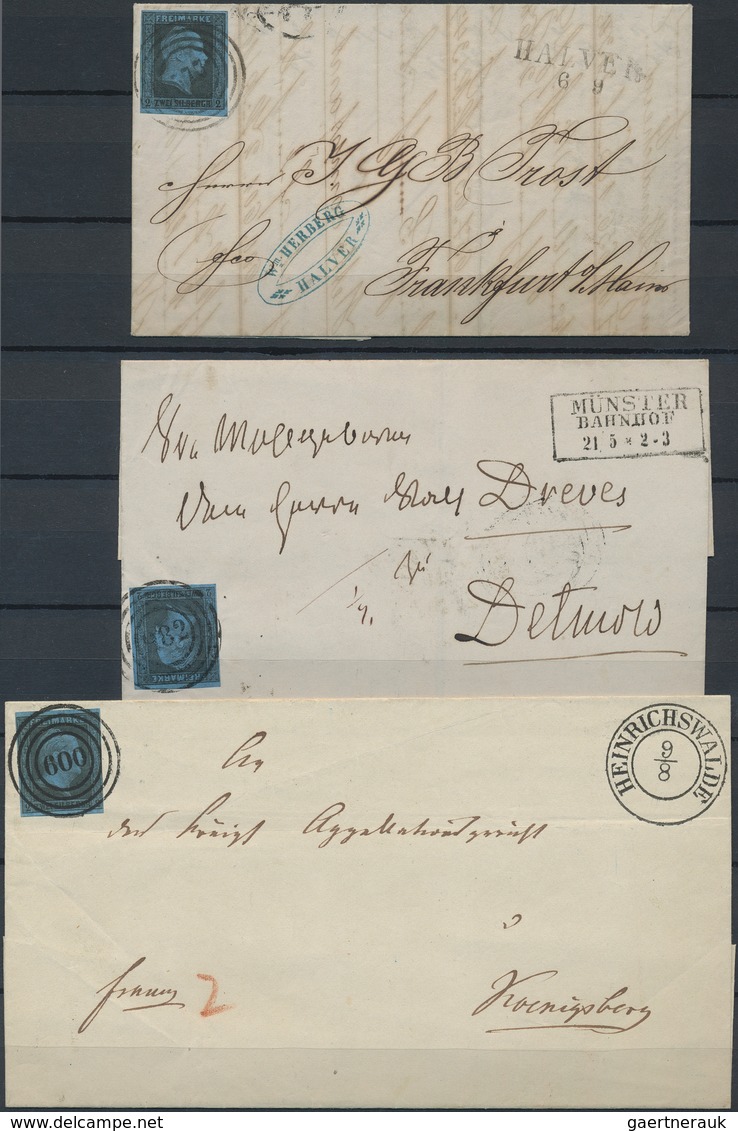 FREIMARKE
2 ZWEI SILBERGR. 2
HALVER
6 9
Herrn J. G. B. Trost
Wm HERBERG
HALVER
Frankfurt a/Main
MÜNSTER
BAHNHOF
21 5 * 2-3
Dreves
zu
Detmold
982
FREIMARKE
FREIMARKE
600
HEINRICHSWALDE
9
8
An
das Königl Appellationsgericht
Koenigsberg
franco
2
www.delcampe.net
gaertnerauk